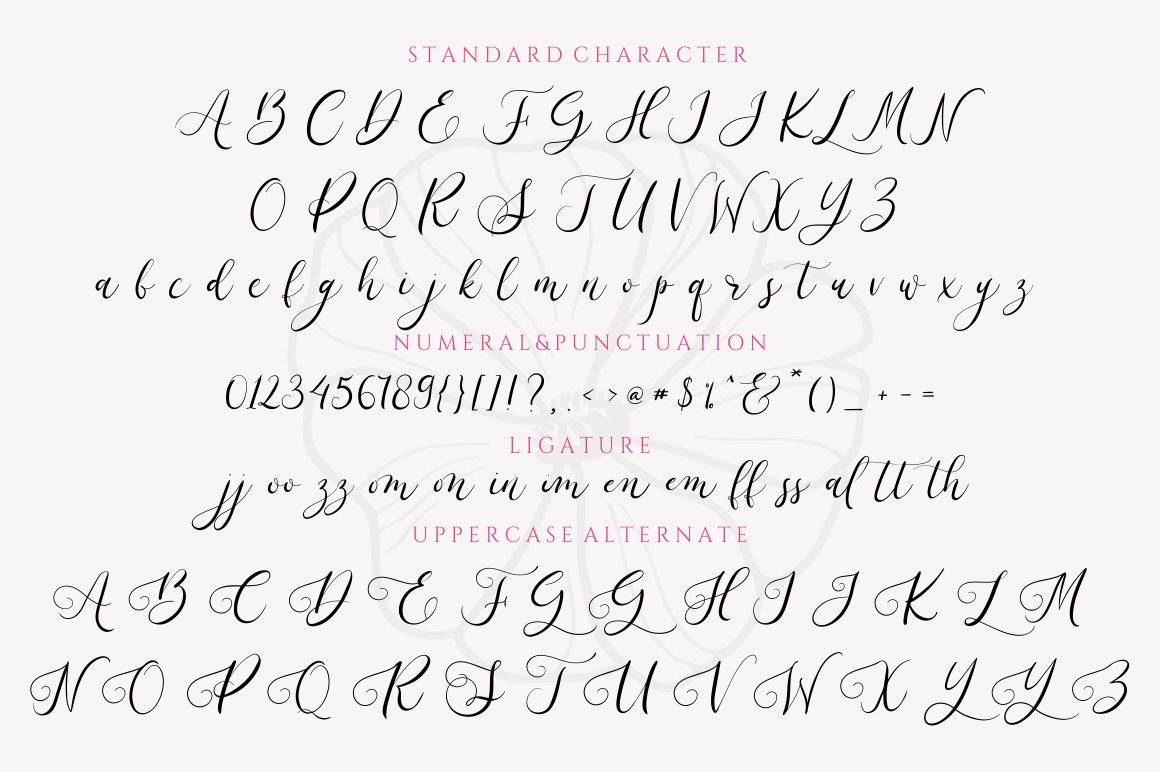 STANDARD CHARACTER
A B C D E F G H I J K L M N
O P Q R S T U V W X Y Z
a b c d e f g h i j k l m n o p q r s t u v w x y z
NUMERAL&PUNCTUATION
0123456789{}[]!?,.< >@#$%^&*()_ + - =
LIGATURE
jj oo zz om on in im en em ff ss al tt th
UPPERCASE ALTERNATE
A B C D E F G G H I J K L M
N O P Q R S T U V W X Y Y Z